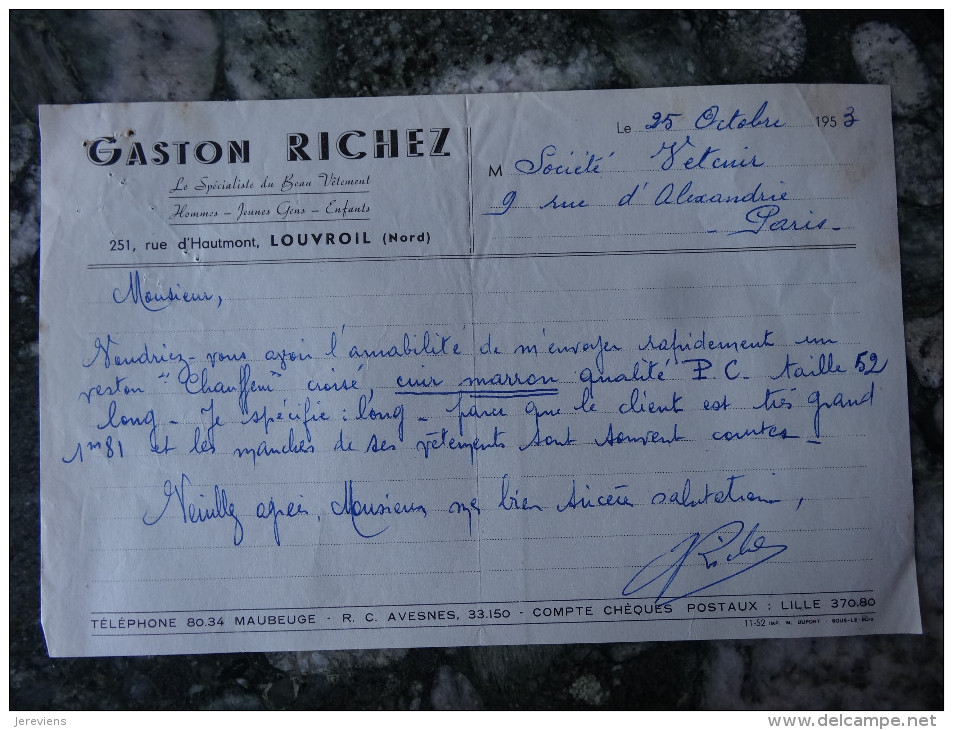 GASTON RICHEZ
Le Spécialiste du Beau Vêtement
Hommes - Jeunes Gens - Enfants
251, rue d'Hautmont, LOUVROIL (Nord)
Le 25 Octobre 1953
M Société Vetcuir
9 rue d'Alexandrie
- Paris -
Monsieur,
Voudriez-vous avoir l'amabilité de m'envoyer rapidement un
veston "Chauffeur" croisé, cuir marron qualité P.C. taille 52
long - Je spécifie : long - parce que le client est très grand
1m81 et les manches de ses vêtements sont souvent courtes -
Veuillez agréer, Monsieur, ma bien sincère salutation,
Richez
TÉLÉPHONE 80.34 MAUBEUGE - R. C. AVESNES, 33.150 - COMPTE CHÈQUES POSTAUX : LILLE 370.80
11-52 IMP. M. DUPONT SOUS-LE-BOIS
jereviens
www.delcampe.net